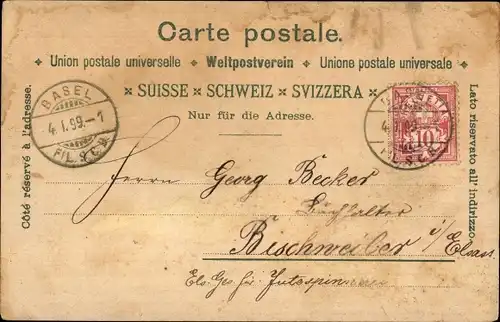 Carte postale.
✦ Union postale universelle ✦ Weltpostverein ✦ Unione postale universale ✦
× SUISSE × SCHWEIZ × SVIZZERA ×
Nur für die Adresse.
Côté réservé à l'adresse.
Lato riservato all' indirizzo.
BASEL
4. I. 99.-1
FIL.
10
Herrn Georg Becker
Buchhalter
Bischweiler i/
Elsass
Els. Ges. für Jutespinnerei